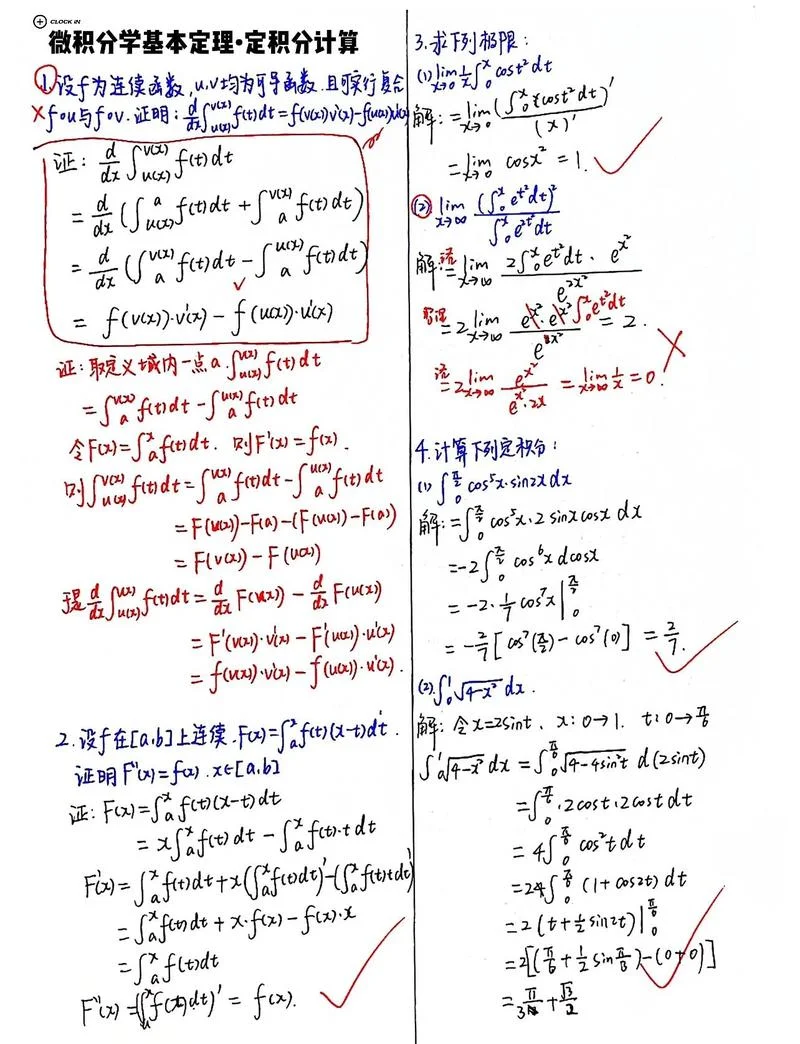 CLOCK IN
微积分学基本定理·定积分计算
1. 设f为连续函数, u,v均为可导函数. 且可实行复合
× f∘u与f∘v. 证明: d/dx∫_{u(x)}^{v(x)} f(t)dt=f(v(x))v'(x)-f(u(x))u'(x)
证: d/dx ∫_{u(x)}^{v(x)} f(t)dt
= d/dx (∫_{u(x)}^{a} f(t)dt + ∫_{a}^{v(x)} f(t)dt)
= d/dx (∫_{a}^{v(x)} f(t)dt - ∫_{a}^{u(x)} f(t)dt)
= f(v(x))·v'(x) - f(u(x))·u'(x)
证: 取定义域内一点a. ∫_{u(x)}^{v(x)} f(t)dt
= ∫_{a}^{v(x)} f(t)dt - ∫_{a}^{u(x)} f(t)dt
令F(x)=∫_{a}^{x} f(t)dt. 则F'(x)=f(x).
则∫_{u(x)}^{v(x)} f(t)dt = ∫_{a}^{v(x)} f(t)dt - ∫_{a}^{u(x)} f(t)dt
= F(v(x))-F(a)-(F(u(x))-F(a))
= F(v(x)) - F(u(x))
于是 d/dx ∫_{u(x)}^{v(x)} f(t)dt = d/dx F(v(x)) - d/dx F(u(x))
= F'(v(x))·v'(x) - F'(u(x))·u'(x)
= f(v(x))·v'(x) - f(u(x))·u'(x).
2. 设f在[a,b]上连续. F(x)=∫_{a}^{x} f(t)(x-t)dt.
证明F''(x)=f(x). x∈[a,b]
证: F(x)=∫_{a}^{x} f(t)(x-t)dt
= x∫_{a}^{x} f(t)dt - ∫_{a}^{x} f(t)·t dt
F'(x) = ∫_{a}^{x} f(t)dt + x(∫_{a}^{x} f(t)dt)' - (∫_{a}^{x} f(t)t dt)'
= ∫_{a}^{x} f(t)dt + x·f(x) - f(x)·x
= ∫_{a}^{x} f(t)dt
F''(x) = (∫_{a}^{x} f(t)dt)' = f(x).
3. 求下列极限:
(1) lim_{x→0} 1/x ∫_{0}^{x} cost² dt
解: = lim_{x→0} (∫_{0}^{x} cost² dt)' / (x)'
= lim_{x→0} cosx² = 1.
(2) lim_{x→∞} (∫_{0}^{x} e^{t²}dt)² / ∫_{0}^{x} e^{2t²}dt
解: 洛= lim_{x→∞} 2∫_{0}^{x} e^{t²}dt · e^{x²} / e^{2x²}
整理= 2 lim_{x→∞} e^{x²}·e^{x²} ∫_{0}^{x} e^{t²}dt / e^{x²} = 2. ×
洛= 2 lim_{x→∞} e^{x²} / e^{x²}·2x = lim_{x→∞} 1/x = 0.
4. 计算下列定积分:
(1) ∫_{0}^{π/2} cos⁵x·sin2x dx
解: = ∫_{0}^{π/2} cos⁵x·2 sinx cosx dx
= -2∫_{0}^{π/2} cos⁶x dcosx
= -2·1/7 cos⁷x |_{0}^{π/2}
= -2/7 [cos⁷(π/2) - cos⁷(0)] = 2/7.
(2) ∫_{0}^{1} √(4-x²) dx.
解: 令x=2sint. x: 0→1. t: 0→π/6
∫_{0}^{1} √(4-x²) dx = ∫_{0}^{π/6} √(4-4sin²t) d(2sint)
= ∫_{0}^{π/6} 2cost·2cost dt
= 4∫_{0}^{π/6} cos²t dt
= 2∫_{0}^{π/6} (1+cos2t) dt
= 2(t+1/2 sin2t) |_{0}^{π/6}
= 2[(π/6 + 1/2 sin π/3) - (0+0)]
= π/3 + √3/2